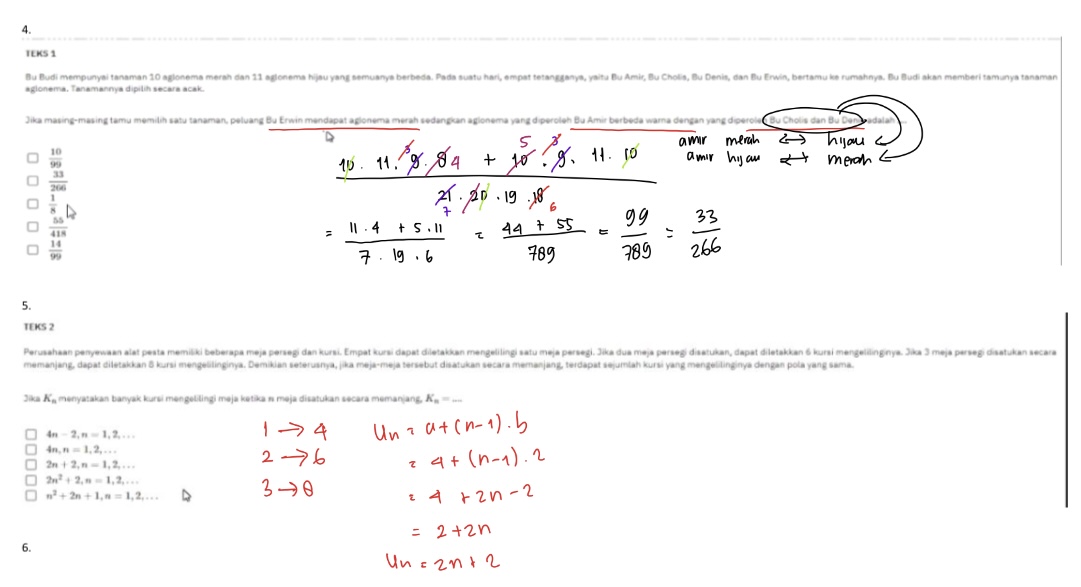 4.
TEKS 1
Bu Budi mempunyai tanaman 10 aglonema merah dan 11 aglonema hijau yang semuanya berbeda. Pada suatu hari, empat tetangganya, yaitu Bu Amir, Bu Cholis, Bu Denis, dan Bu Erwin, bertamu ke rumahnya. Bu Budi akan memberi tamunya tanaman
aglonema. Tanamannya dipilih secara acak.
Jika masing-masing tamu memilih satu tanaman, peluang Bu Erwin mendapat aglonema merah sedangkan aglonema yang diperoleh Bu Amir berbeda warna dengan yang diperoleh Bu Cholis dan Bu Denis adalah ...
amir merah ↔ hijau
amir hijau ↔ merah
10/99
33/266
1/8
55/418
14/99
5 3
3 4
10 . 11 . 9 . 8 + 10 . 9 . 11 . 10
21 . 20 . 19 . 18
7 6
= 11 . 4 + 5 . 11 / 7 . 19 . 6 = 44 + 55 / 789 = 99/789 = 33/266
5.
TEKS 2
Perusahaan penyewaan alat pesta memiliki beberapa meja persegi dan kursi. Empat kursi dapat diletakkan mengelilingi satu meja persegi. Jika dua meja persegi disatukan, dapat diletakkan 6 kursi mengelilinginya. Jika 3 meja persegi disatukan secara
memanjang, dapat diletakkan 8 kursi mengelilinginya. Demikian seterusnya, jika meja-meja tersebut disatukan secara memanjang, terdapat sejumlah kursi yang mengelilinginya dengan pola yang sama.
Jika Kₙ menyatakan banyak kursi mengelilingi meja ketika n meja disatukan secara memanjang, Kₙ = ....
4n − 2, n = 1, 2, ...
4n, n = 1, 2, ...
2n + 2, n = 1, 2, ...
2n² + 2, n = 1, 2, ...
n² + 2n + 1, n = 1, 2, ...
1 → 4
2 → 6
3 → 8
Un = a + (n-1) . b
= 4 + (n-1) . 2
= 4 + 2n - 2
= 2 + 2n
Un = 2n + 2
6.